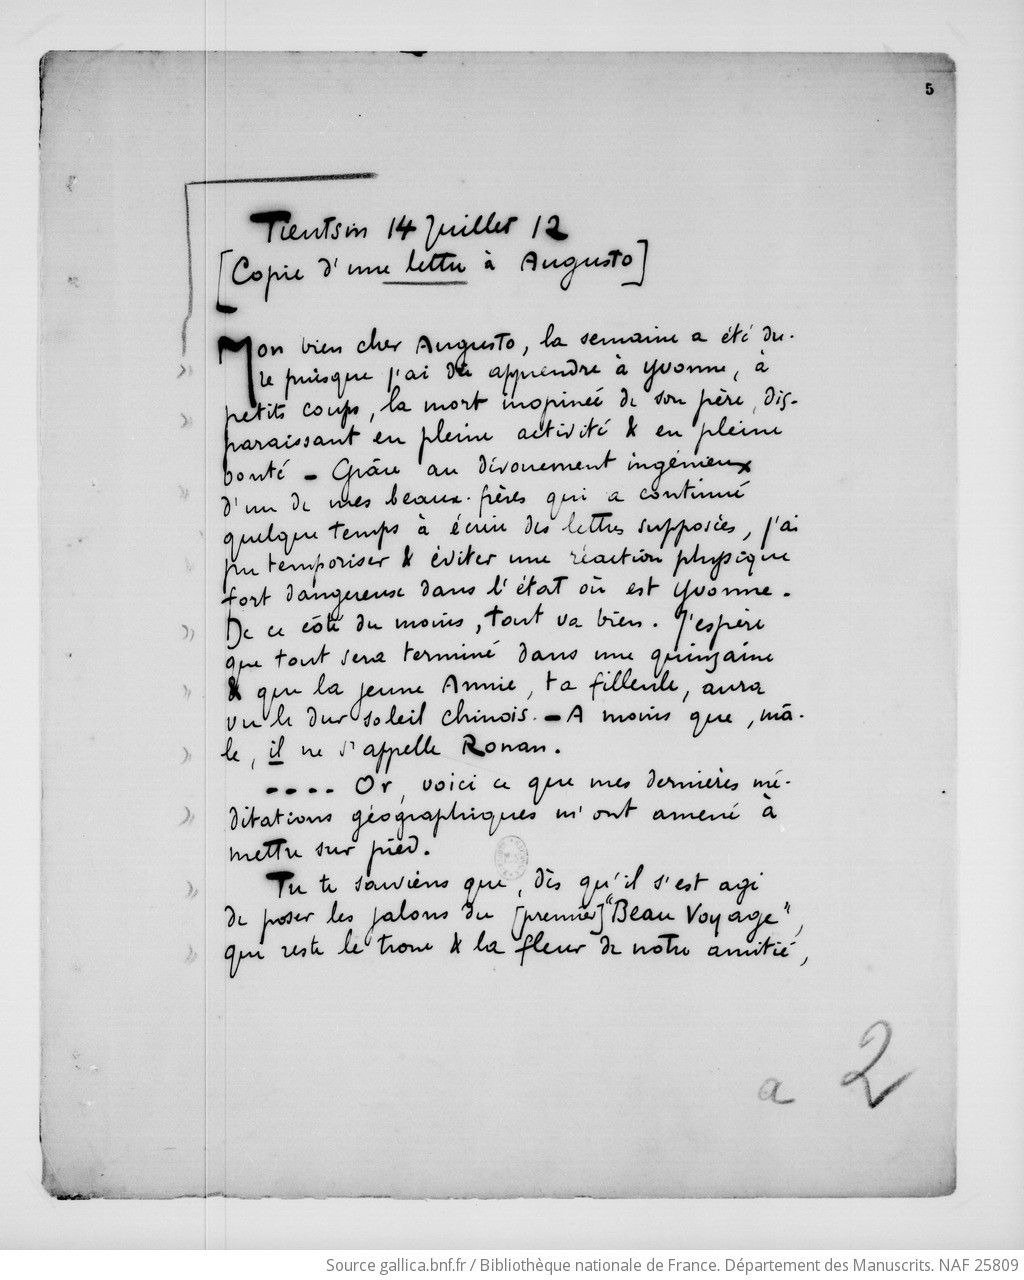 5
Tientsin 14 Juillet 12
[Copie d'une lettre à Augusto]
Mon bien cher Augusto, la semaine a été du-
re puisque j'ai dû apprendre à Yvonne, à
petits coups, la mort inopinée de son père, dis-
paraissant en pleine activité & en pleine
bonté – Grâce au dévouement ingénieux
d'un de mes beaux-frères qui a continué
quelque temps à écrire des lettres supposées, j'ai
pu temporiser & éviter une réaction physique
fort dangereuse dans l'état où est Yvonne.
De ce côté du moins, tout va bien. J'espère
que tout sera terminé dans une quinzaine
& que la jeune Annie, ta filleule, aura
vu le dur soleil chinois. – A moins que, mâ-
le, il ne s'appelle Ronan.
---- Or, voici ce que mes dernières mé-
ditations géographiques m'ont amené à
mettre sur pied.
Tu te souviens que, dès qu'il s'est agi
de poser les jalons du [premier] "Beau Voyage",
qui reste le tronc & la fleur de notre amitié,
a 2
Source gallica.bnf.fr / Bibliothèque nationale de France. Département des Manuscrits. NAF 25809